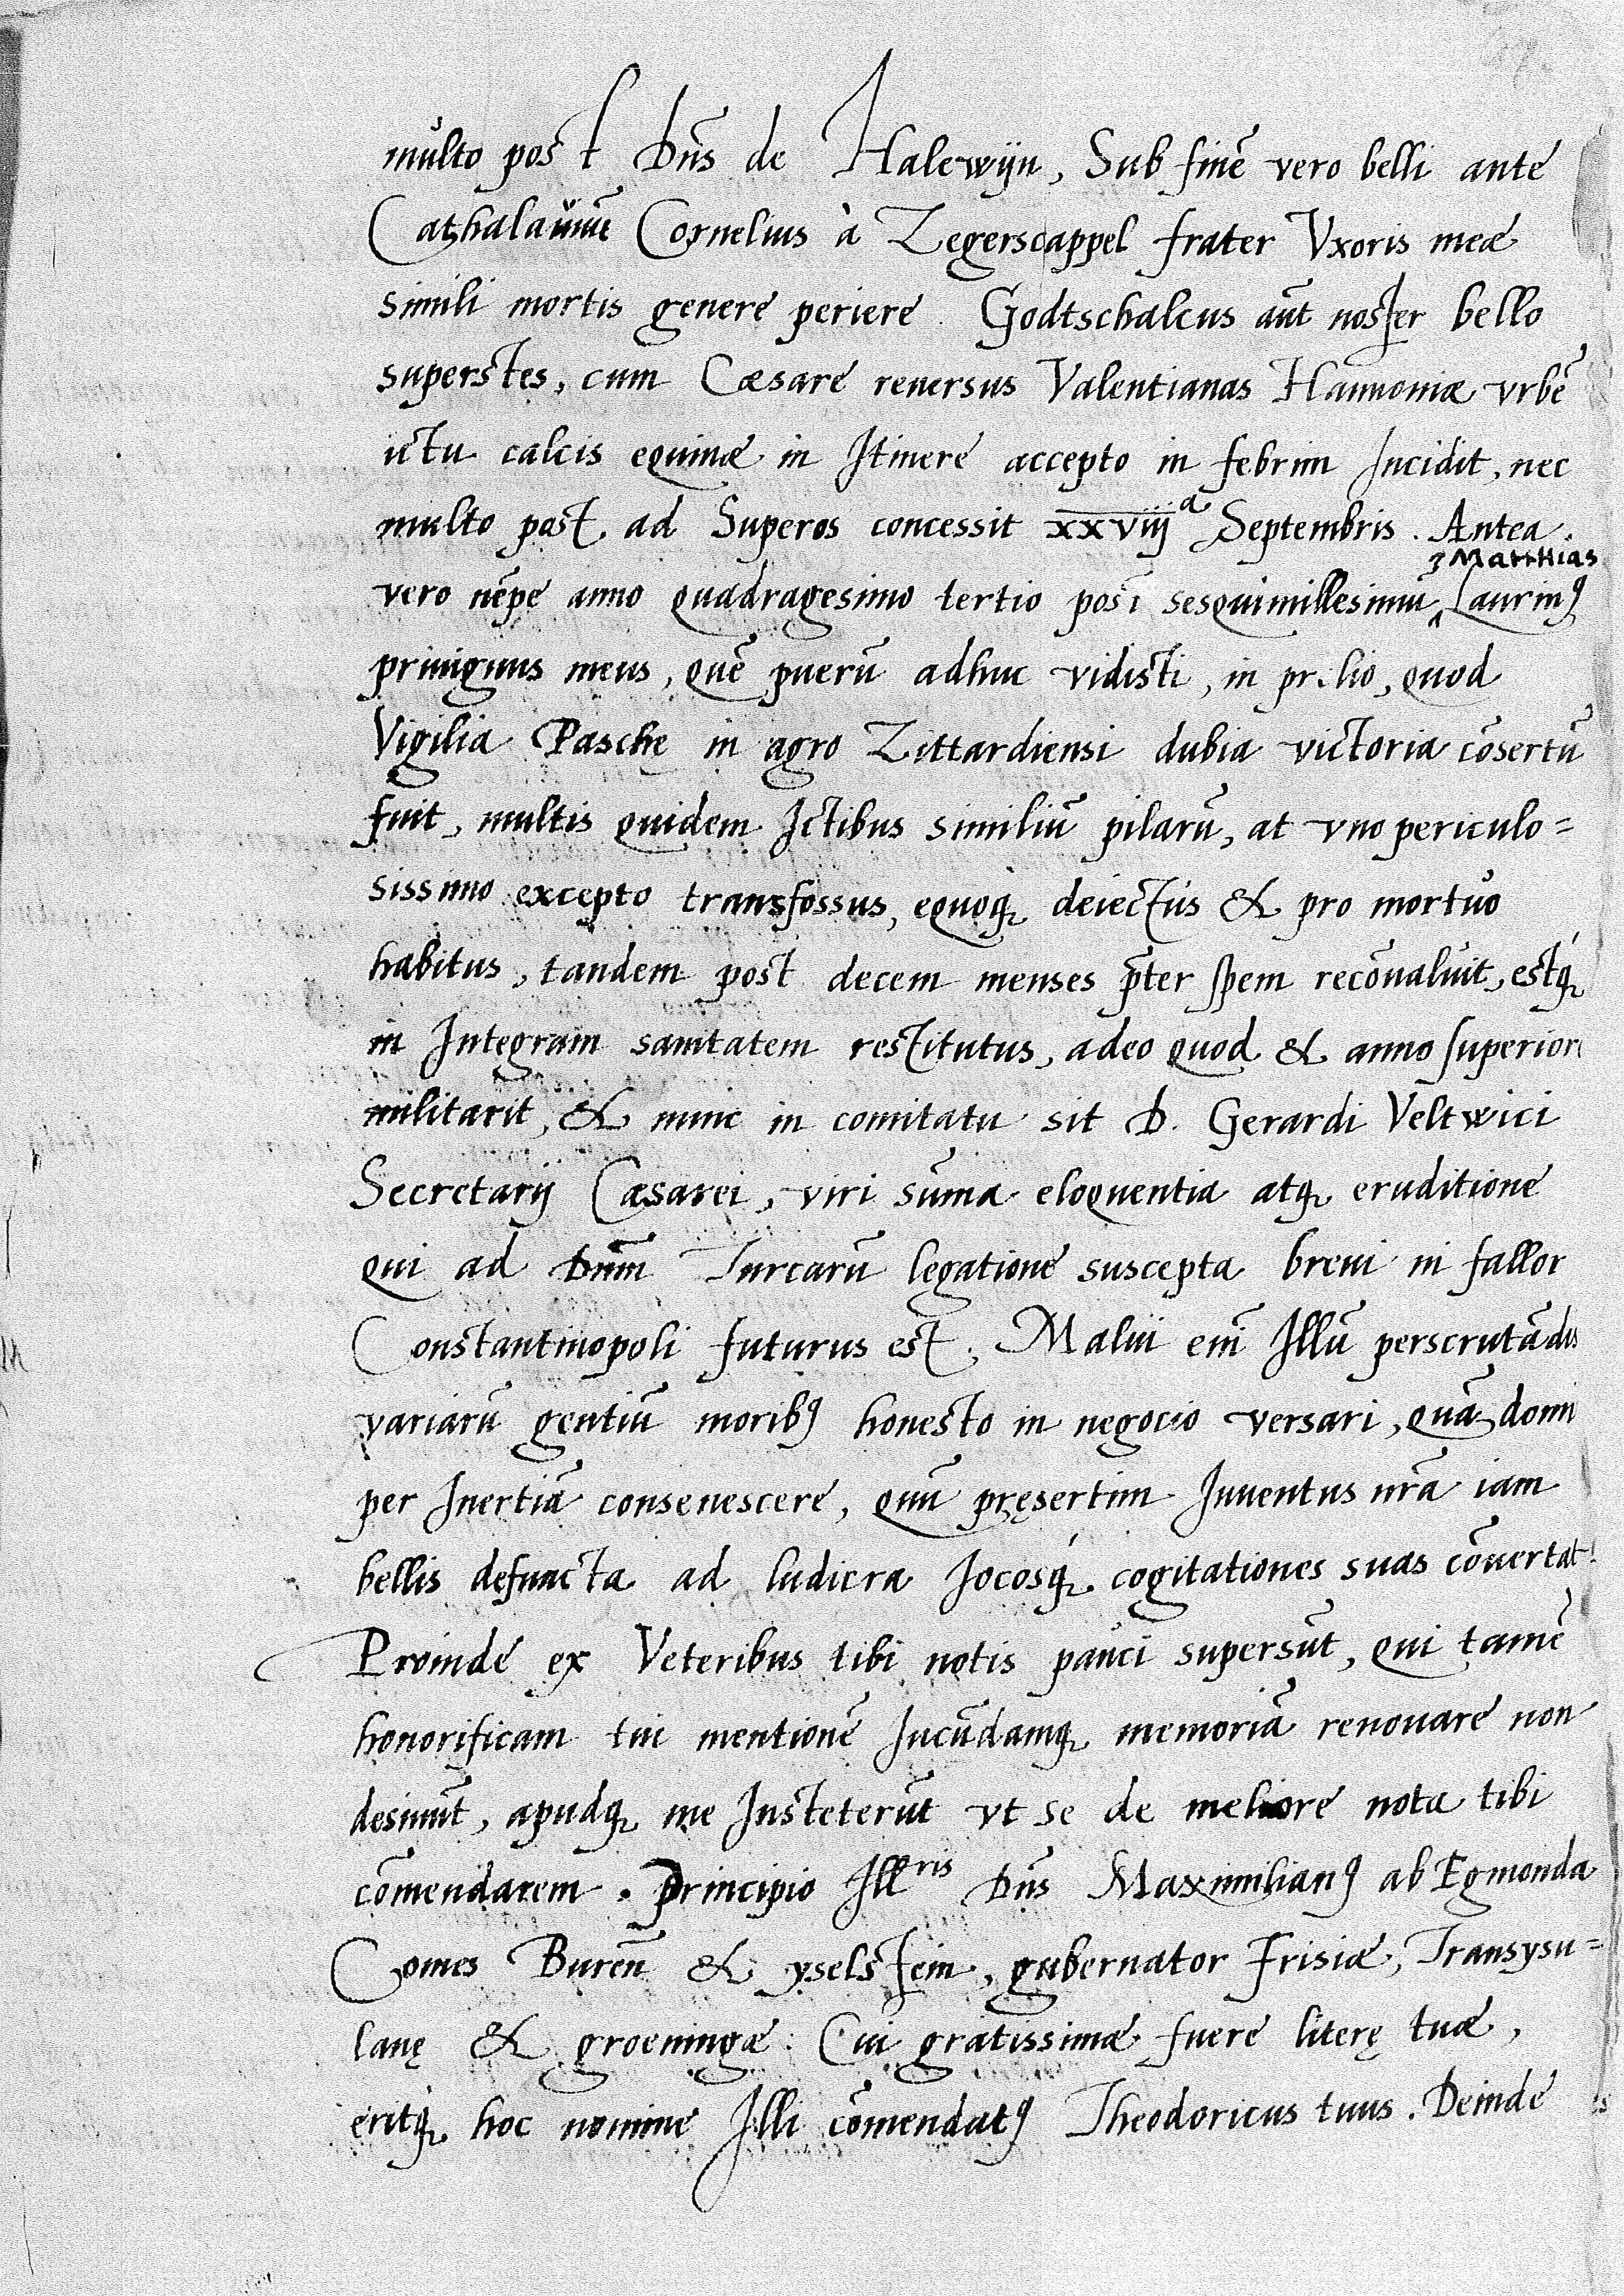 multo post Dn̄s de Halewijn, Sub finē vero belli ante
Cathalaunū Cornelius à Zegerscappel frater Vxoris meæ
simili mortis genere periere. Godtschalcus aūt noster bello
superstes, cum Cæsare reuersus Valentianas Hannoniæ vrbē
ictu calcis equinæ in Itinere accepto in febrim Incidit, nec
multo post ad Superos concessit xxviijᵃ Septembris. Antea
Matthias
vero nēpe anno quadragesimo tertio post sesquimillesimū ‸ Laurinꝰ
priuignus meus, quē puerū adhuc vidisti, in prælio, quod
Vigilia Paschę in agro Zittardiensi dubia victoria cōsertū
fuit, multis quidem Ictibus similiū pilarū, at vno periculo=
sissimo excepto transfossus, equoqꝫ deiectus & pro mortuo
habitus, tandem post decem menses p̄ter spem recōualuit, estqꝫ
in Integram sanitatem restitutus, adeo quod & anno superiore
militarit, & nunc in comitatu sit D. Gerardi Veltwici
Secretarij Cæsarei, viri sūma eloquentia atqꝫ eruditione
qui ad Dn̄m Turcarū legatione suscepta breui ni fallor
Constantinopoli futurus est. Malui em̄ Illū perscrutādis
variarū gentiū moribꝰ honesto in negocio versari, quā domi
per Inertiā consenescere, quū pręsertim Iuuentus nr̄a iam
bellis defuncta ad ludicra Iocosqꝫ cogitationes suas cōuertat.
Proinde ex Veteribus tibi notis pauci supersūt, qui tamē
honorificam tui mentionē Iucūdamqꝫ memoriā renouare non
desinūt, apudqꝫ me Institerūt vt se de meliore nota tibi
cōmendarem. Principio Illʳⁱˢ Dn̄s Maximilianꝰ ab Egmonda
Comes Buren̄ & yselstein, gubernator Frisiæ, Transysu=
lanę & groeningæ. Cui gratissimæ fuere literę tuæ,
eritqꝫ hoc nomine Illi cōmendatꝰ Theodoricus tuus. Deinde